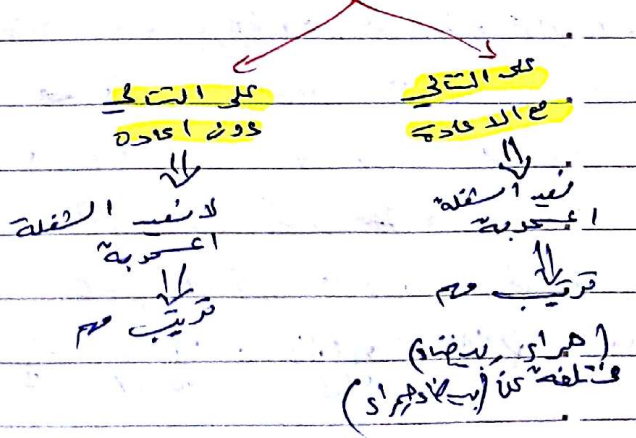 على التتالي
مع الاعادة
نعيد الشغلة
المسحوبة
ترتيب مهم
(حمراء، بيضاء)
مختلفة عن (بيضاء، حمراء)
على التتالي
دون اعادة
لا نعيد الشغلة
المسحوبة
ترتيب مهم